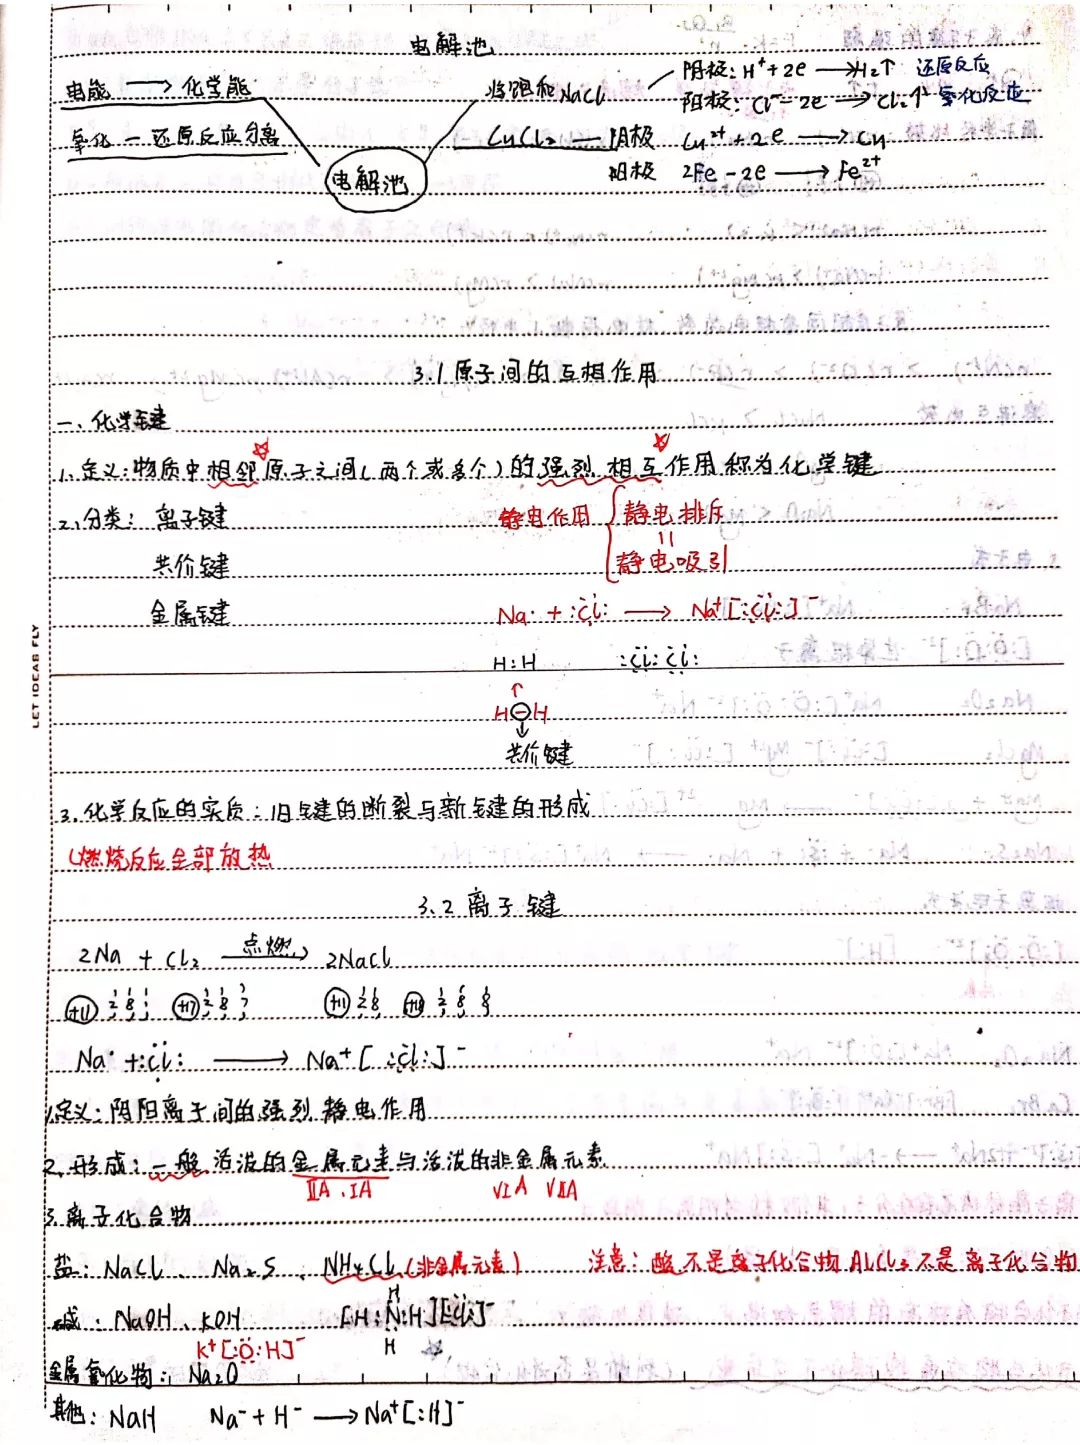 电解池
电能 → 化学能
氧化 — 还原反应分离
电解池
当饱和NaCl
阴极: H⁺+2e → H₂↑ 还原反应
阳极: Cl⁻-2e → Cl₂↑ 氧化反应
CuCl₂ — 阴极 Cu²⁺+2e → Cu
阳极 2Fe-2e → Fe²⁺
3.1 原子间的互相作用
一、化学键
1.定义:物质中相邻原子之间(两个或多个)的强烈相互作用称为化学键
2.分类: 离子键
静电作用 { 静电排斥
=
静电吸引
共价键
金属键
Na· + :Cl: → Na⁺[:Cl:]⁻
H:H :Cl:Cl:
H—H
共价键
3.化学反应的实质:旧键的断裂与新键的形成
(燃烧反应全部放热
3.2 离子键
2Na + Cl₂ 点燃 → 2NaCl
+11 2 8 1 +17 2 8 7 +11 2 8 2 8 8
Na· + :Cl: → Na⁺[:Cl:]⁻
1.定义:阴阳离子间的强烈静电作用
2.形成:一般活泼的金属元素与活泼的非金属元素
ⅡA、ⅠA ⅥA ⅦA
3.离子化合物
盐: NaCl、Na₂S、NH₄Cl(非金属元素) 注意:酸不是离子化合物 AlCl₃不是离子化合物
碱: NaOH、KOH [H:N:H][:Cl:]⁻
H
H
K⁺[:O:H]⁻
金属氧化物: Na₂O
其他: NaH Na⁻+H⁻ → Na⁺[:H]⁻
LET IDEAS FLY